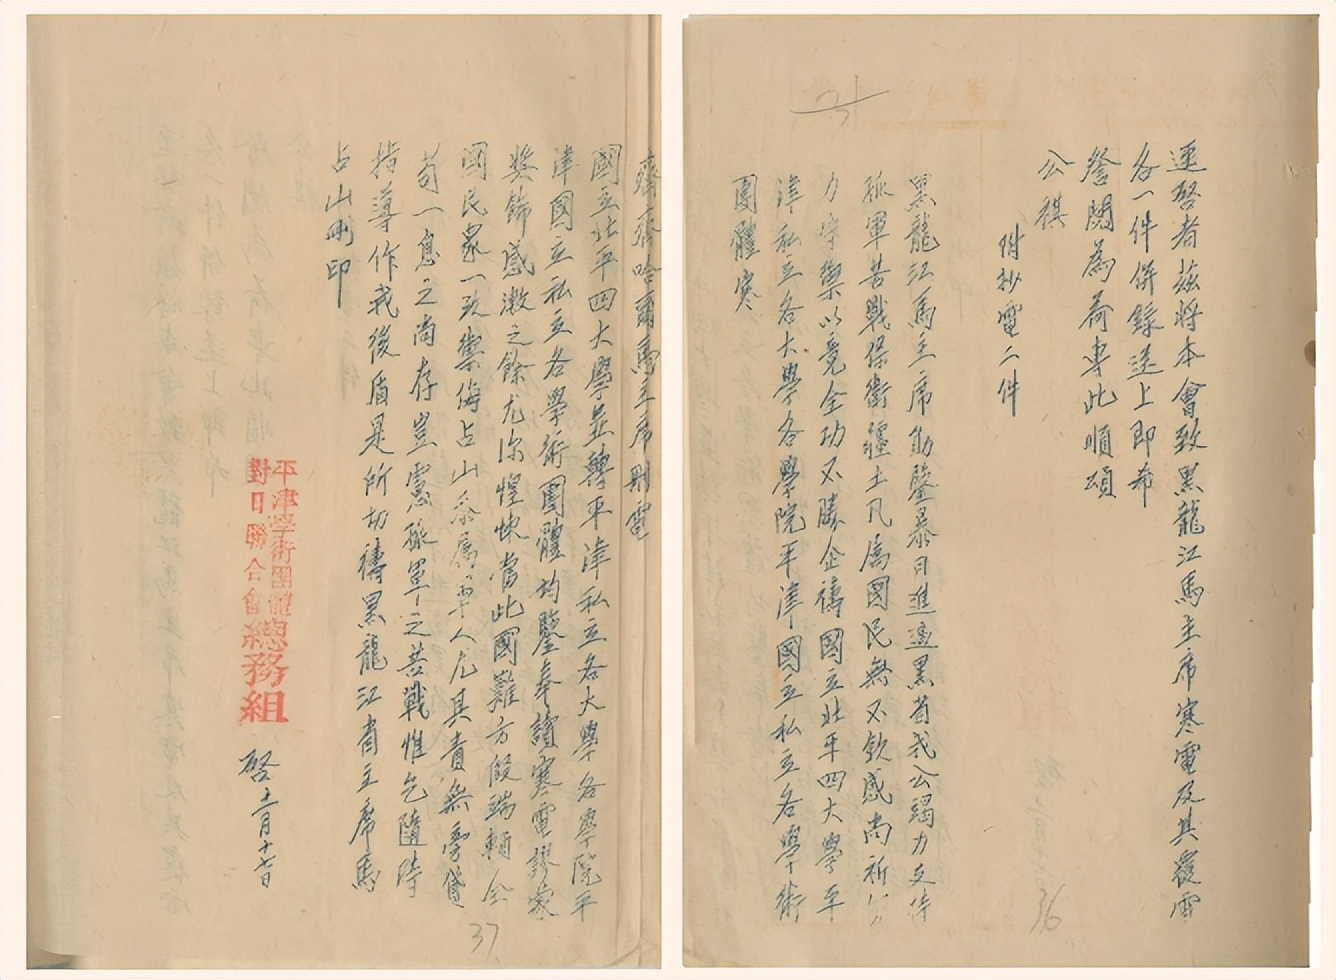 逕啓者茲將本會致黑龍江馬主席寒電及其覆電
各一件併錄送上即希
詧閱為荷專此順頌
公祺
附抄電二件
黑龍江馬主席勛鑒暴日進逼黑省我公竭力支持
孤軍苦戰保衛疆土凡屬國民無不欽感尚祈
力守禦以竟全功不勝企禱國立北平四大學平
津私立各大學各學院平津國立私立各學術
團體寒
31
36
齊齊哈爾馬主席刪電
國立北平四大學並轉平津私立各大學各學院平
津國立私立各學術團體均鑒奉讀寒電謬蒙
奬飾感激之餘尤深惶悚當此國難方殷端賴全
國民衆一致禦侮占山忝屬軍人尤其責無旁貸
苟一息之尚存豈憲孤軍之苦戰惟乞隨時
指導作我後盾是所切禱黑龍江省主席馬
占山刪印
平津學術團體
對日聯合會
總務組
啓 十一月十七日
37